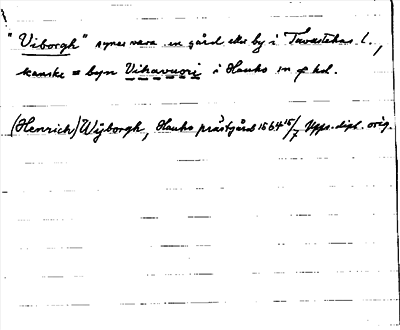 "Viborgh" synes vara en gård eller by i Tavastehus l.,
kanske = byn Vihavuori i Hauho sn o hd.
(Henrich) Wijborgh, Hauho prästgård 1564 15/7 Upps. dipl. orig.